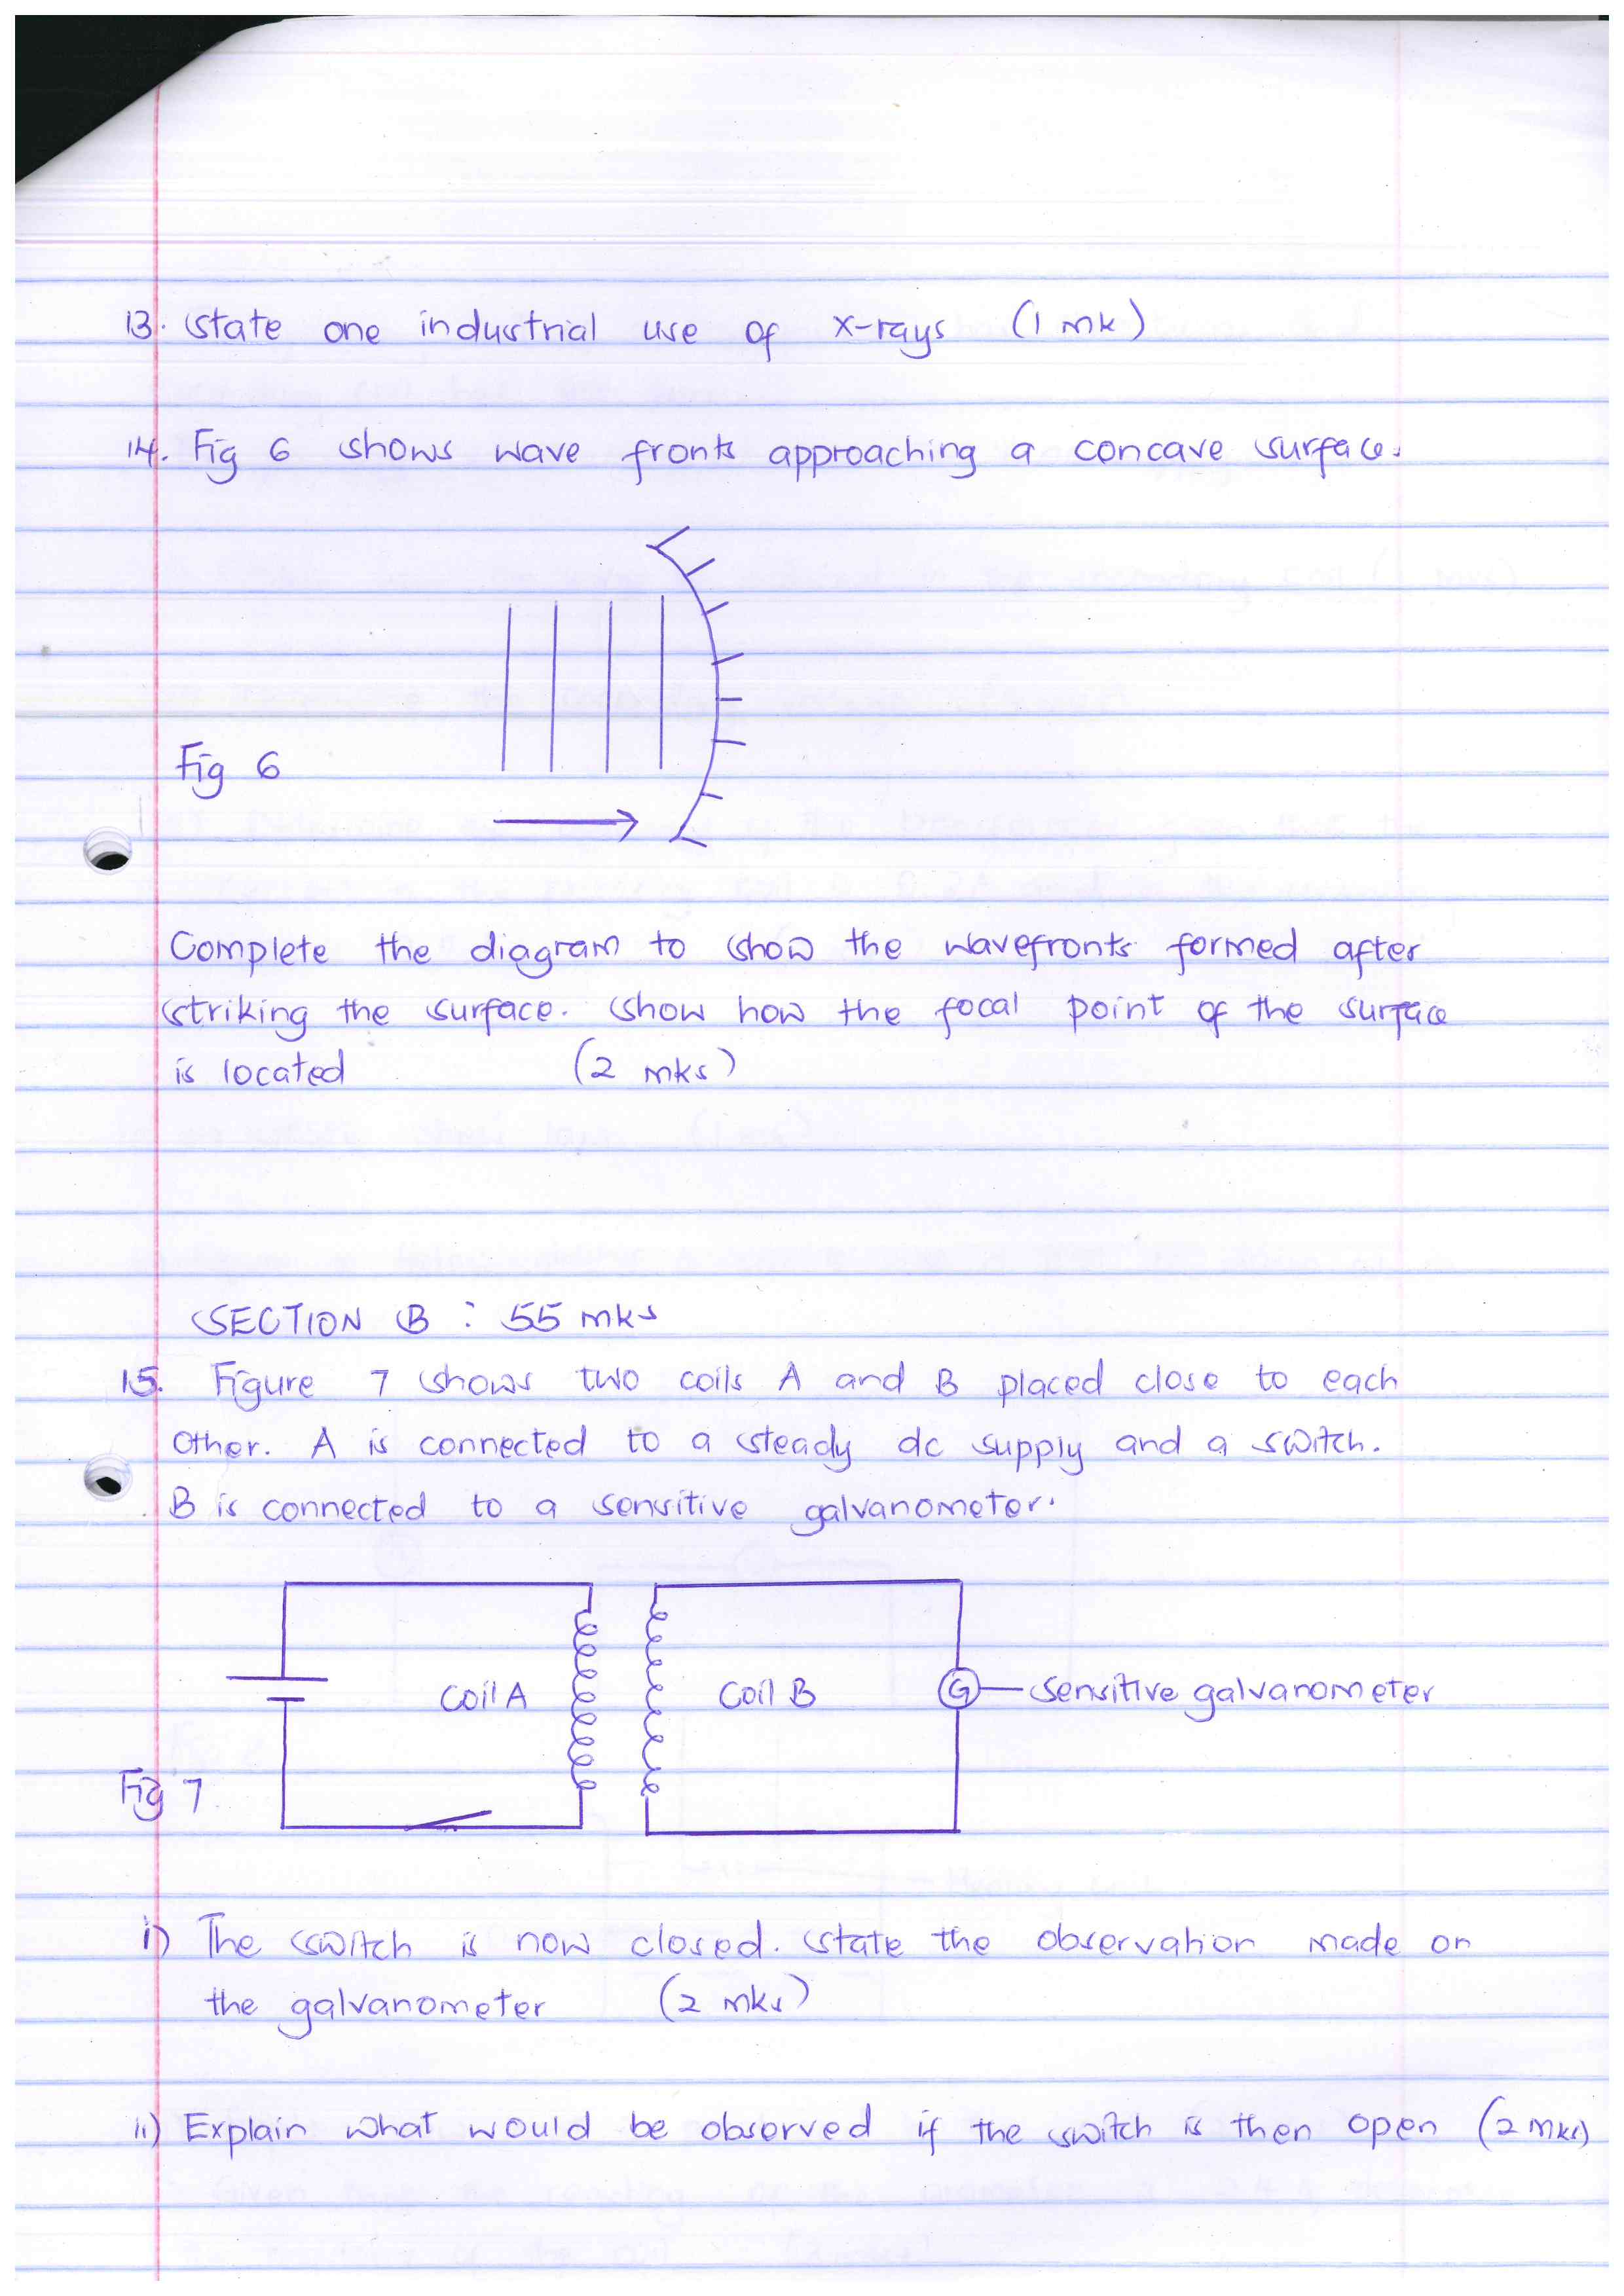 13. State one industrial use of x-rays (1 mk)
14. Fig 6 shows wave fronts approaching a concave surface.
Fig 6
Complete the diagram to show the wavefronts formed after
striking the surface. Show how the focal point of the surface
is located (2 mks)
SECTION B : 55 mks
15. Figure 7 shows two coils A and B placed close to each
other. A is connected to a steady dc supply and a switch.
B is connected to a sensitive galvanometer.
Coil A Coil B G sensitive galvanometer
Fig 7
i) The switch is now closed. State the observation made on
the galvanometer (2 mks)
ii) Explain what would be observed if the switch is then open (2 mks)